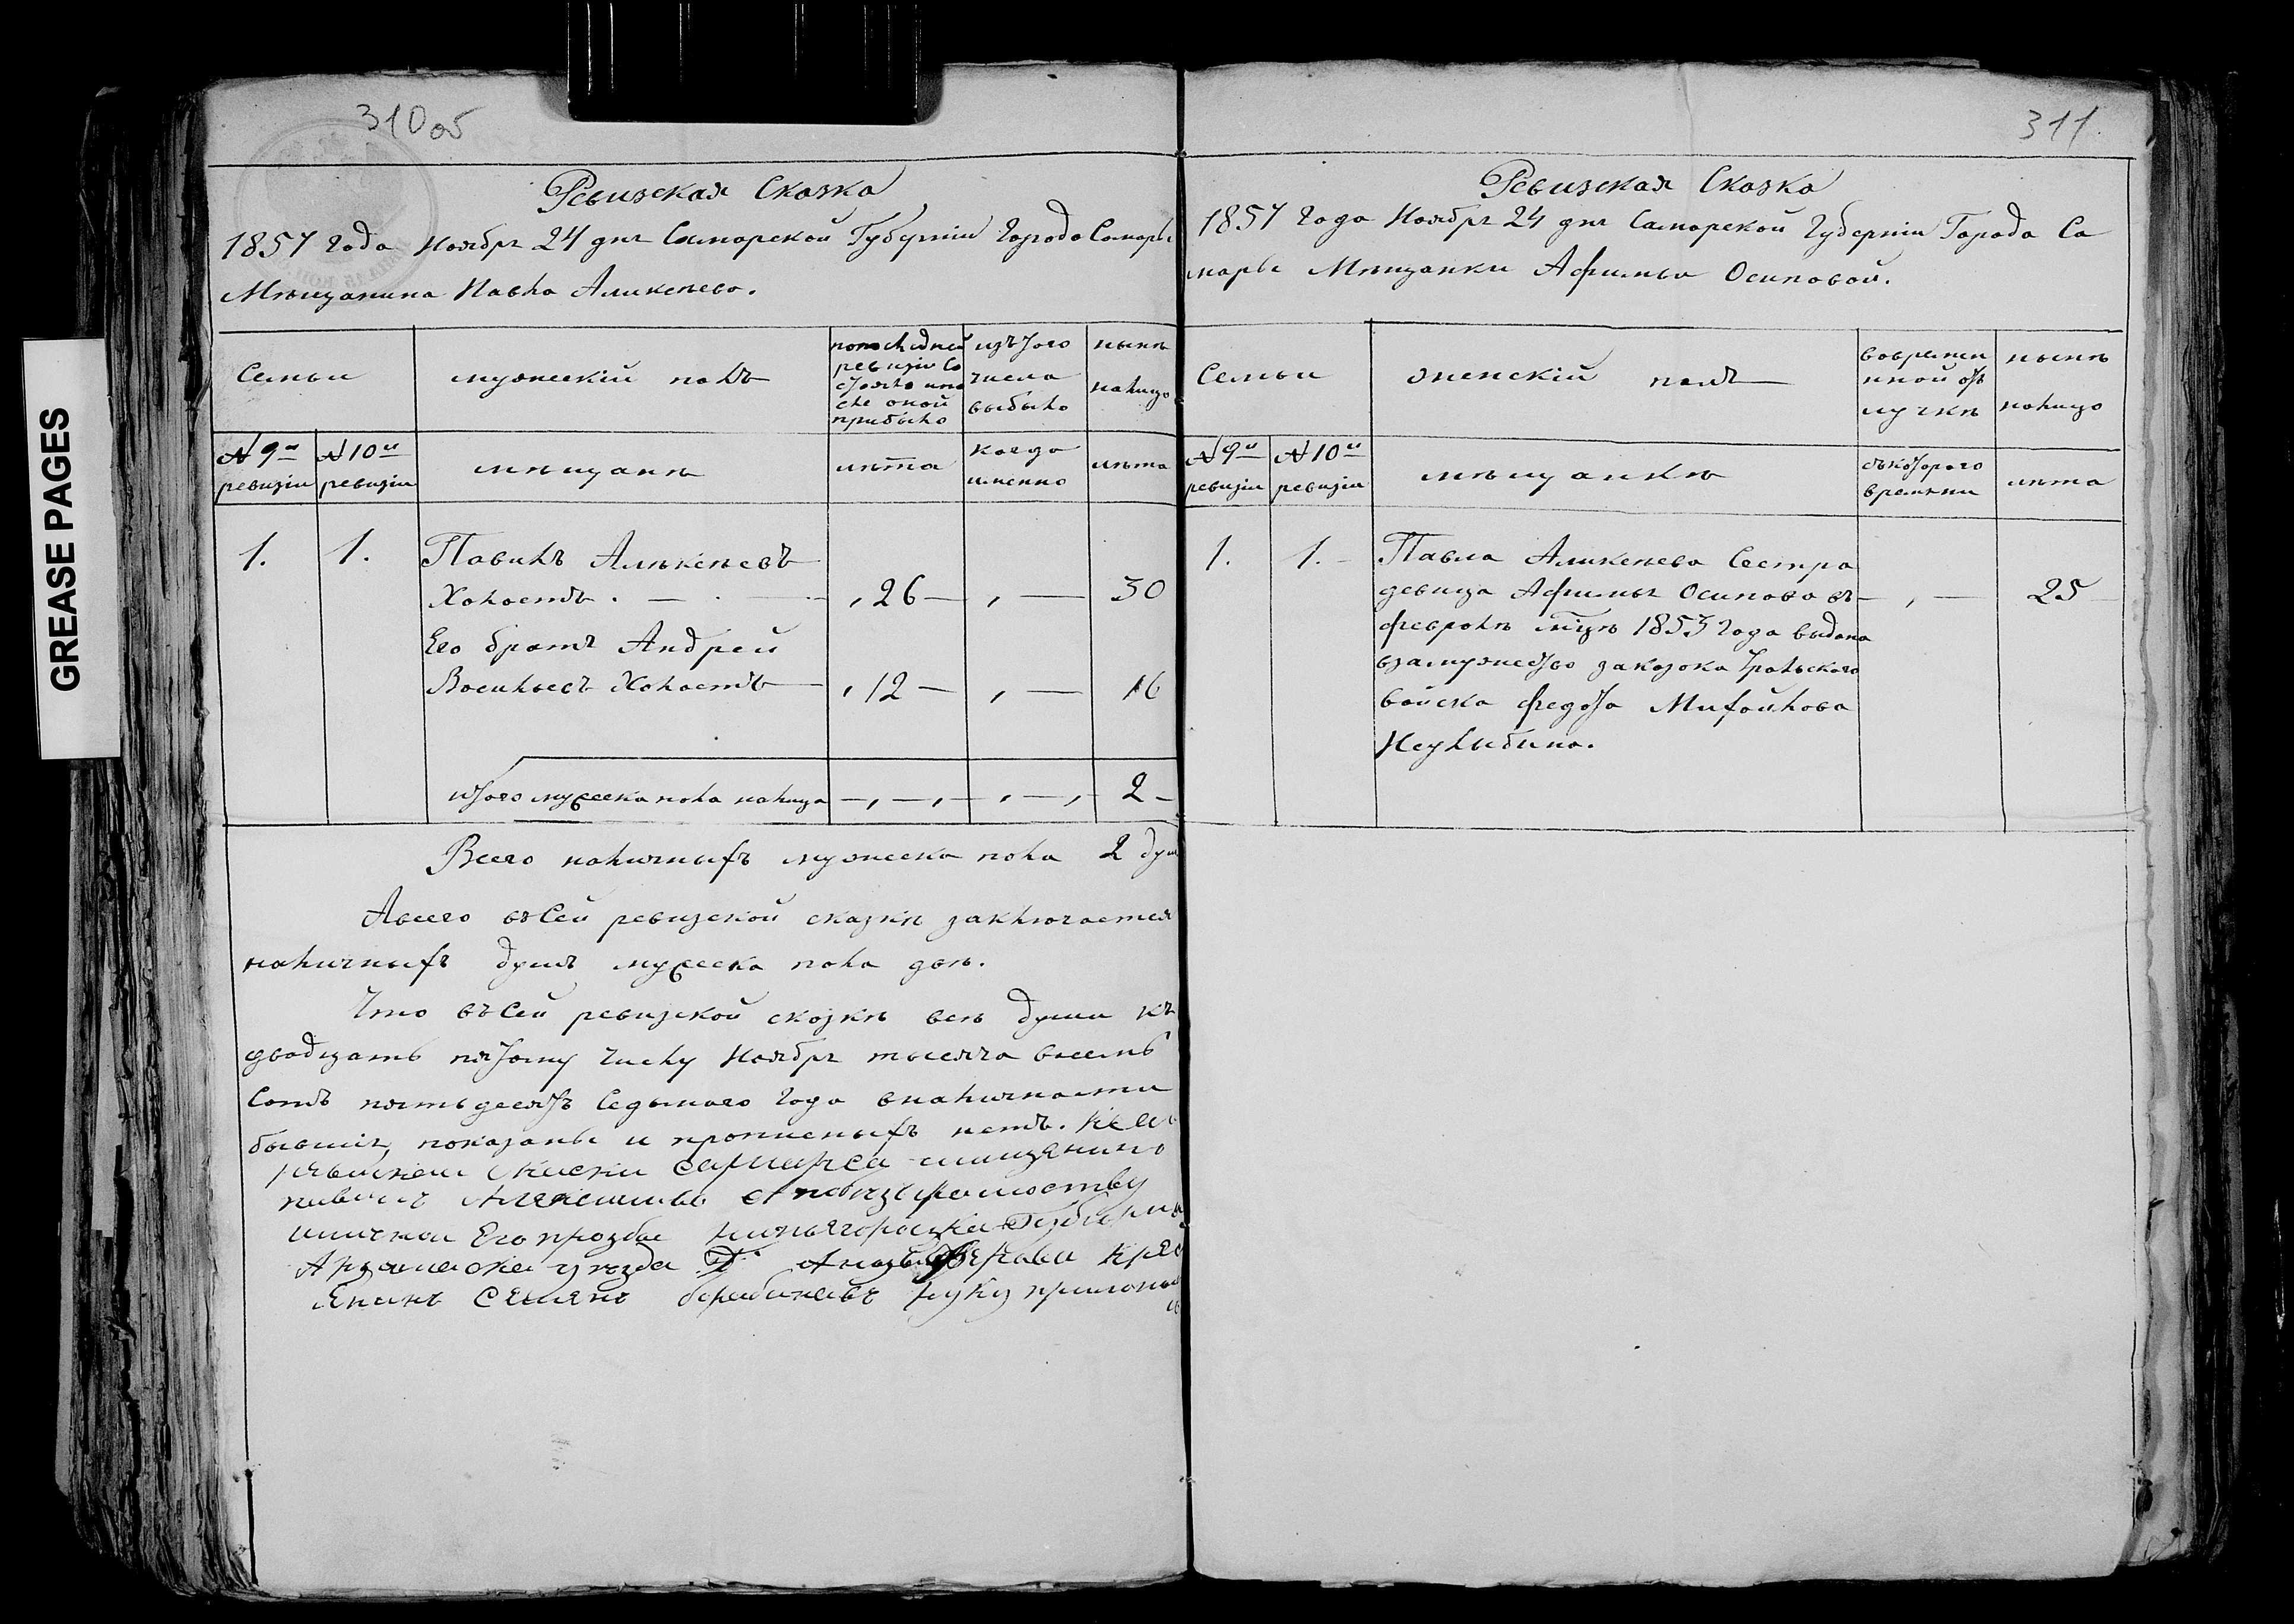 GREASE PAGES
310 об
Ревизская Сказка
1857 года Ноября 24 дня Самарской Губернии Города Самары
Мѣщанина Павла Аликѣева.
Семьи
мужескій полъ
по последней ревизіи состояло и после оной прибыло
изъ того числа выбыло
нынѣ налицо
№ 9й ревизіи
№ 10й ревизіи
мѣщанѣ
лѣта
когда именно
лѣта
1. 1. Павилъ Алѣкѣевъ
Холостъ . — 26 — , — 30
Его братъ Андрей
Васильевъ Холостъ — 12 — , — 16
итого мужеска пола налицо — 2 —
Всего наличныхъ мужеска пола 2 душ
А всего въ Сей ревизской сказкѣ заключается
наличныхъ душъ мужеска пола двѣ.
Что въ Сей ревизской сказкѣ всѣ души къ
двадцать пятому числу Ноября тысяча восемь
Сотъ пятьдесятъ Седьмаго года в наличности
бывшія, показаны и прописныхъ нетъ. К сей
ревизкой скаски мищенино
Его прозбе Губерни
уезда
Семенъ руку приложилъ
311
Ревизская Сказка
1857 года Ноября 24 дня Самарской Губерніи Города Са
мары Мѣщанки Афимьи Осиповой.
Семьи
женскій полъ
во времен
нной от
лучкѣ
нынѣ
налицо
№ 9й ревизіи
№ 10й ревизіи
мѣщанкѣ
съ котораго
времѣни
лѣта
1. 1. Павла Аликѣева Сестра
девица Афимья Осипова въ — , — 25
февролѣ мцѣ 1853 года выдана
взамужество за козока Уральского
войска Федота Михайлова